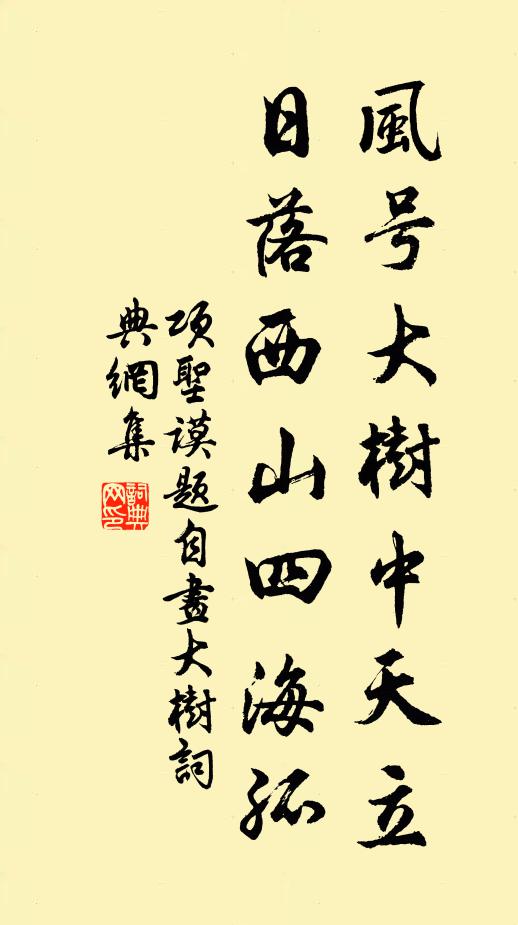 風号大樹中天立
日落西山四海孤
項聖謨題自畫大樹詞
典網集
詞典网印